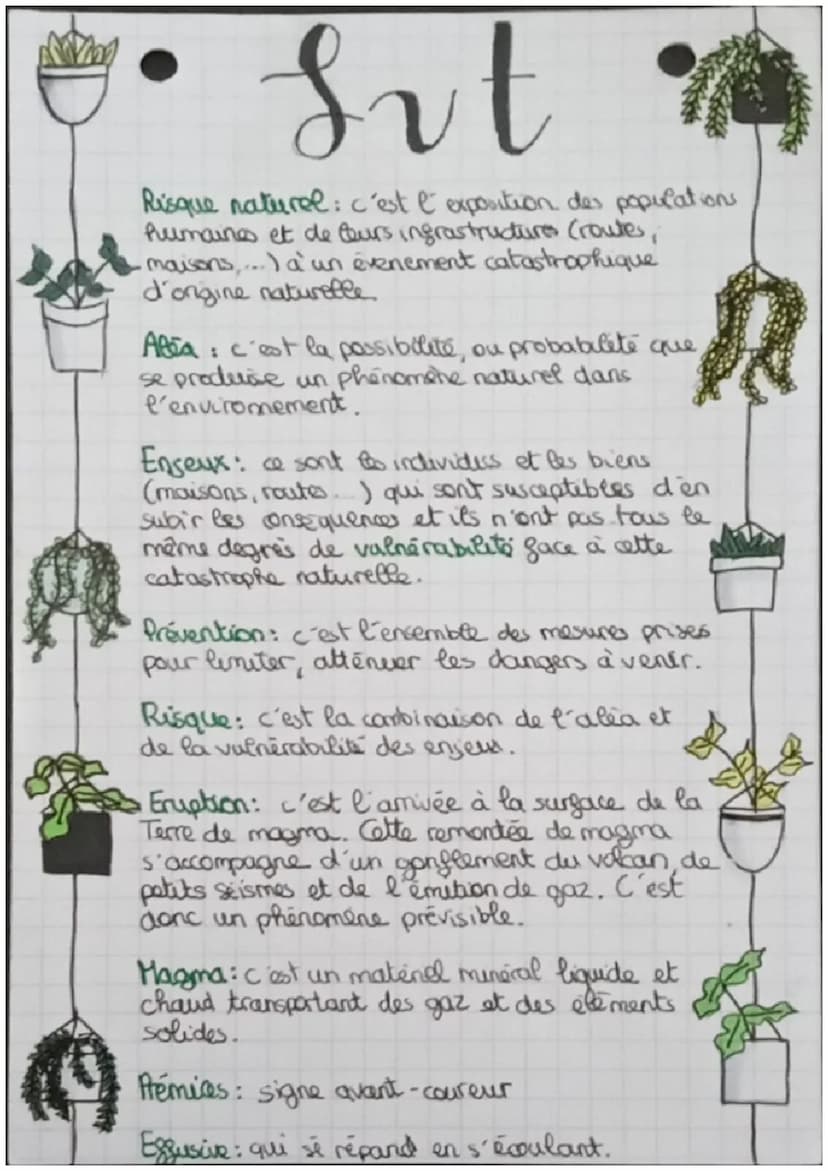 Svt
Risque naturel : c'est l'exposition des populations
humaines et de leurs infrastructures (routes,
maisons,...) à un évenement catastrophique
d'origine naturelle.
Aléa : c'est la possibilité, ou probabilité que
se produise un phénomène naturel dans
l'environnement.
Enjeux : ce sont les individus et les biens
(maisons, routes...) qui sont susceptibles d'en
subir les conséquences et ils n'ont pas tous le
même degrés de vulnérabilité face à cette
catastrophe naturelle.
Prévention : c'est l'ensemble des mesures prises
pour limiter, atténuer les dangers à venir.
Risque : c'est la combinaison de l'aléa et
de la vulnérabilité des enjeux.
Eruption : c'est l'arrivée à la surface de la
Terre de magma. Cette remontée de magma
s'accompagne d'un gonflement du volcan, de
petits séismes et de l'émition de gaz. C'est
donc un phénomène prévisible.
Magma : c'est un matériel minéral liquide et
chaud transportant des gaz et des éléments
solides.
Prémices : signe avant-coureur
Effusive : qui se répand en s'écoulant.